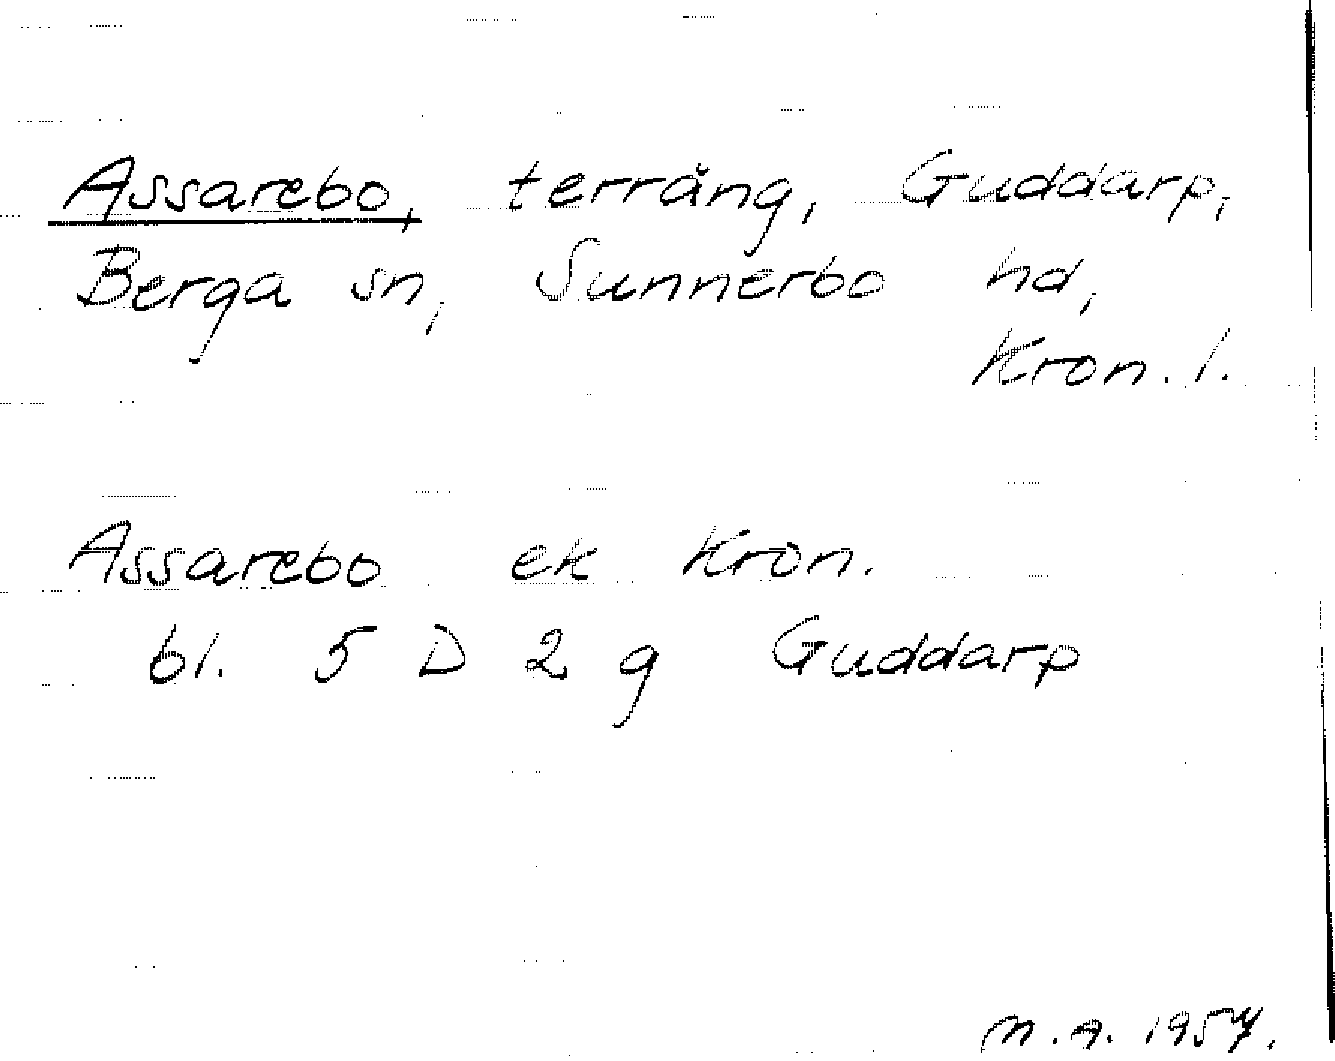 Assarebo, terräng, Guddarp,
Berga sn, Sunnerbo hd,
Kron. l.
Assarebo ek Kron.
bl. 5 D 2 g Guddarp
1957.